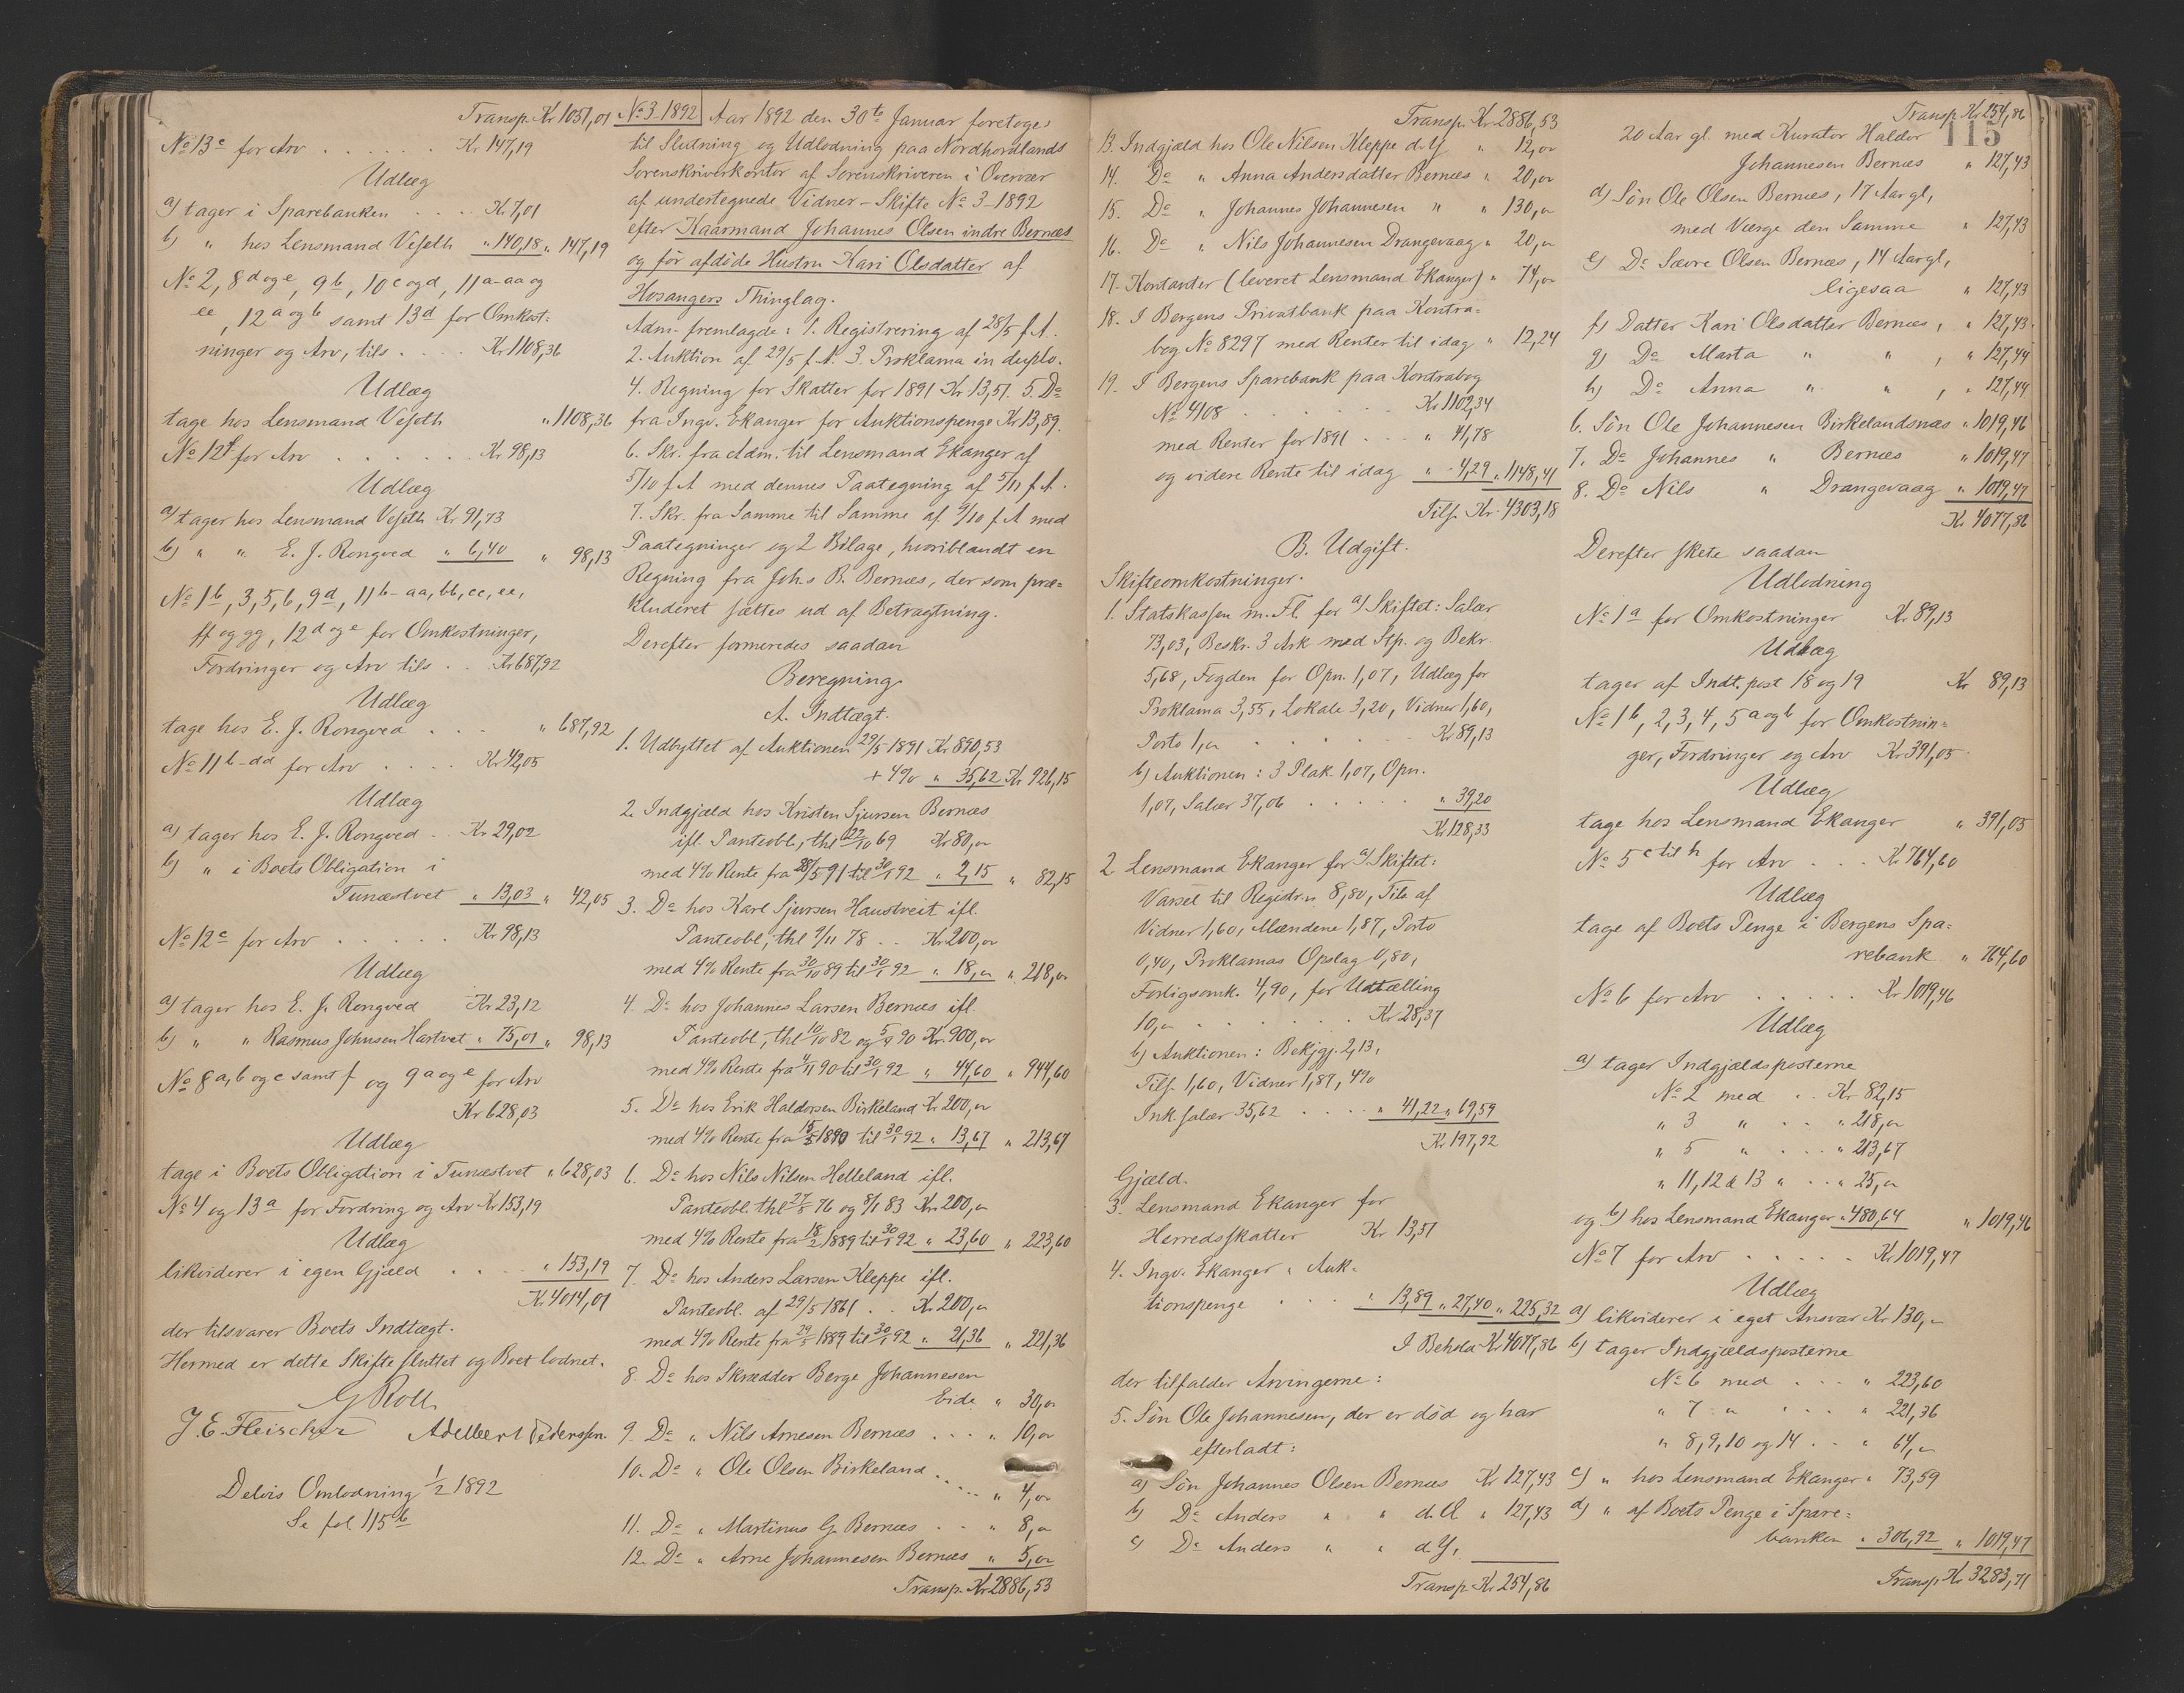 Transp. Kr 1051,01
No 13c for Arv . . . . . . Kr. 147,19
Udlæg
a) tager i Sparebanken . . . . Kr. 7,01
b) " hos Lensmand Vefseth " 140,18 " 147,19
No 2, 8d og e, 9b, 10c og d, 11a-aa og
ee, 12a og b samt 13d for Omkost-
ninger og Arv, tils. . . . Kr 1108,36
Udlæg
tage hos Lensmand Vefseth " 1108,36
No 12f for Arv . . . . . . Kr. 98,13
Udlæg
a) tager hos Lensmand Vefseth Kr 91,73
b) " " E. J. Rongved " 6,40 " 98,13
No 1b, 3, 5, 6, 9d, 11b-aa, bb, cc, ee,
ff og gg, 12d og e for Omkostninger,
Fordringer og Arv tils . . Kr 687,92
Udlæg
tage hos E. J. Rongved . . . " 687,92
No 11b-dd for Arv . . . . Kr 42,05
Udlæg
a) tager hos E. J. Rongved . . Kr. 29,02
b) " i Boets Obligation i
Tunæstvet " 13,03 " 42,05
No 12c for Arv . . . . . Kr. 98,13
Udlæg
a) tager hos E. J. Rongved Kr. 23,12
b) " " Rasmus Johnsen Hartvet " 75,01 " 98,13
No 8a, b og c samt f og 9a og e for Arv
Kr 628,03
Udlæg
tage i Boets Obligation i Tunæstvet " 628,03
No 4 og 13a for Fordring og Arv Kr 153,19
Udlæg
likviderer i egen Gjæld . . . " 153,19
Kr. 4014,01
der tilsvarer Boets Indtægt.
Hermed er dette Skifte sluttet og Boet lodnet.
G Roll
J. E. Fleischer Adelbert Pederssen.
Delvis Omlodning 1/2 1892
Se fol 115b
No 3-1892 Aar 1892 den 30te Januar foretoges
til Slutning og Udlodning paa Nordhordlands
Sorenskriverkontor af Sorenskriveren i Overvær
af undertegnede Vidner - Skifte No 3-1892
efter Kaarmand Johannes Olsen indre Bernæs
og før afdöde Hustru Kari Olsdatter af
Hosangers Thinglag.
Adm. fremlagde: 1. Registrering af 28/5 f.A.
2. Auktion af 29/5 f.A. 3. Proklama in duplo.
4. Regning for Skatter for 1891 Kr 13,51. 5. Do
fra Ingv. Ekanger for Auktionspenge Kr 13,89.
6. Skr. fra Adm. til Lensmand Ekanger af
5/10 f A med dennes Paategning af 5/11 f.A.
7. Skr. fra Samme til Samme af 9/10 f. A med
Paategninger og 2 Bilage, hvoriblandt en
Regning fra Johs B. Bernæs, der som præ-
kluderet sættes ud af Betragtning.
Derefter formeredes saadan
Beregning
A. Indtægt.
1. Udbyttet af Auktionen 29/5 1891 Kr 890,53
+ 4% " 35,62 Kr 926,15
2. Indgjæld hos Kristen Sjursen Bernæs
ifl. Panteobl., thl 22/10 69 Kr 80,00
med 4% Rente fra 28/5 91 til 30/1 92 " 2,15 " 82,15
3. Do hos Karl Sjursen Haustveit ifl.
Panteobl., thl 9/11 78 . . Kr. 200,00
med 4% Rente fra 30/10 89 til 30/1 92 " 18,00 " 218,00
4. Do hos Johannes Larsen Bernæs ifl.
Panteobl., thl 10/10 82 og 5/4 90 Kr. 900,00
med 4% Rente fra 4/11 90 til 30/1 92 " 44,60 " 944,60
5. Do hos Erik Haldorsen Birkeland Kr 200,00
med 4% Rente fra 15/5 1890 til 30/1 92 " 13,67 " 213,67
6. Do hos Nils Nilsen Helleland ifl.
Panteobl. thl 27/5 76 og 8/1 83 Kr. 200,00
med 4% Rente fra 18/2 1889 til 30/1 92 " 23,60 " 223,60
7. Do hos Anders Larsen Kleppe ifl.
Panteobl. af 29/5 1861 . . Kr. 200,00
med 4% Rente fra 29/5 1889 til 30/1 92 " 21,36 " 221,36
8. Do hos Skrædder Berge Johannesen
Eide " 30,00
9. Do " Nils Arnesen Bernæs . . . " 10,00
10. Do " Ole Olsen Birkeland . . . . " 4,00
11. Do " Martinus G. Bernæs . . " 8,00
12. Do " Arne Johannesen Bernæs " 5,00
Transp. Kr 2886,53
Transp. Kr 2886,53
13. Indgjæld hos Ole Nilsen Kleppe d.Y " 12,00
14. Do " Anna Andersdatter Bernæs " 20,00
15. Do " Johannes Johannesen " " 130,00
16. Do " Nils Johannesen Drangevaag " 20,00
17. Kontanter (leveret Lensmand Ekanger) " 74,00
18. I Bergens Privatbank paa Kontra-
bog No 8297 med Renter til idag " 12,24
19. I Bergens Sparebank paa Kontrabog
No 4108 . . . . . . Kr 1102,34
med Renter for 1891 . . . " 41,78
og videre Rente til idag " 4,29 " 1148,41
Tils. Kr. 4303,18
B. Udgift.
Skifteomkostninger.
1. Statskassen m. Fl. for a) Skiftet: Salær
73,03, Beskr. 3 Ark med Stp. og Bekr.
5,68, Fogden for Opn. 1,07, Udlæg for
Proklama 3,55, Lokale 3,20, Vidner 1,60,
Porto 1,00 . . . . . . Kr 89,13
b) Auktionen: 3 Plak. 1,07, Opn.
1,07, Salær 37,06 . . . . . " 39,20
Kr 128,33
2 Lensmand Ekanger for a) Skiftet:
Varsel til Registr.n 8,80, Tils af
Vidner 1,60, Mændene 1,87, Porto
0,40, Proklamas Opslag 0,80,
Forligsomk. 4,90, for Udtælling
10,00 . . . . . . . Kr 28,37
b) Auktionen: Bekjgj. 2,13,
Tils. 1,60, Vidner 1,87, 4%
Ink. salær 35,62 . . . . " 41,22 " 69,59
Kr 197,92
Gjæld.
3. Lensmand Ekanger for
Herredsskatter Kr 13,51
4. Ingv. Ekanger " Auk-
tionspenge . . . . " 13,89 " 27,40 " 225,32
I Behold Kr 4077,86
der tilfalder Arvingerne:
5. Søn Ole Johannesen, der er död og har
efterladt:
a) Søn Johannes Olsen Bernæs Kr 127,43
b) Do Anders " " d. Æ " 127,43
c) Do Anders " " d.Y,
Transp. Kr 254,86
Transp. Kr 254,86
115
20 Aar gl. med Kurator Haldor
Johannesen Bernæs " 127,43
d) Søn Ole Olsen Bernæs, 17 Aar gl,
med Værge den Samme " 127,43
e) Do Sævre Olsen Bernæs, 14 Aar gl,
ligesaa " 127,43
f) Datter Kari Olsdatter Bernæs, " 127,43
g) Do Marta " " , " 127,44
h) Do Anna " " , " 127,44
6. Sön Ole Johannesen Birkelandsnæs " 1019,46
7. Do Johannes " Bernæs " 1019,47
8. Do Nils " Drangevaag " 1019,47
Kr 4077,86
Derefter skete saadan
Udlodning
No 1a for Omkostninger Kr. 89,13
Udlæg
tager af Indt. post 18 og 19 Kr 89,13
No 1b, 2, 3, 4, 5a og b for Omkostnin-
ger, Fordringer og Arv Kr 391,05
Udlæg
tage hos Lensmand Ekanger " 391,05
No 5c til h for Arv . . . Kr 764,60
Udlæg
tage af Boets Penge i Bergens Spa-
rebank " 764,60
No 6 for Arv . . . . . Kr 1019,46
Udlæg
a) tager Indgjældsposterne
No 2 med . . Kr 82,15
" 3 " . . " 218,00
" 5 " . . . " 213,67
" 11, 12 & 13 " . . " 25,00
og b) hos Lensmand Ekanger " 480,64 " 1019,46
No 7 for Arv . . . . . Kr 1019,47
Udlæg
a) likviderer i eget Ansvar Kr 130,00
b) tager Indgjældsposterne
No 6 med . . . " 223,60
" 7 " . . . " 221,36
" 8, 9, 10 og 14 . . " 64,00
c) " hos Lensmand Ekanger " 73,59
d) " af Boets Penge i Spare-
banken " 306,92 " 1019,47
Transp. Kr 3283,71